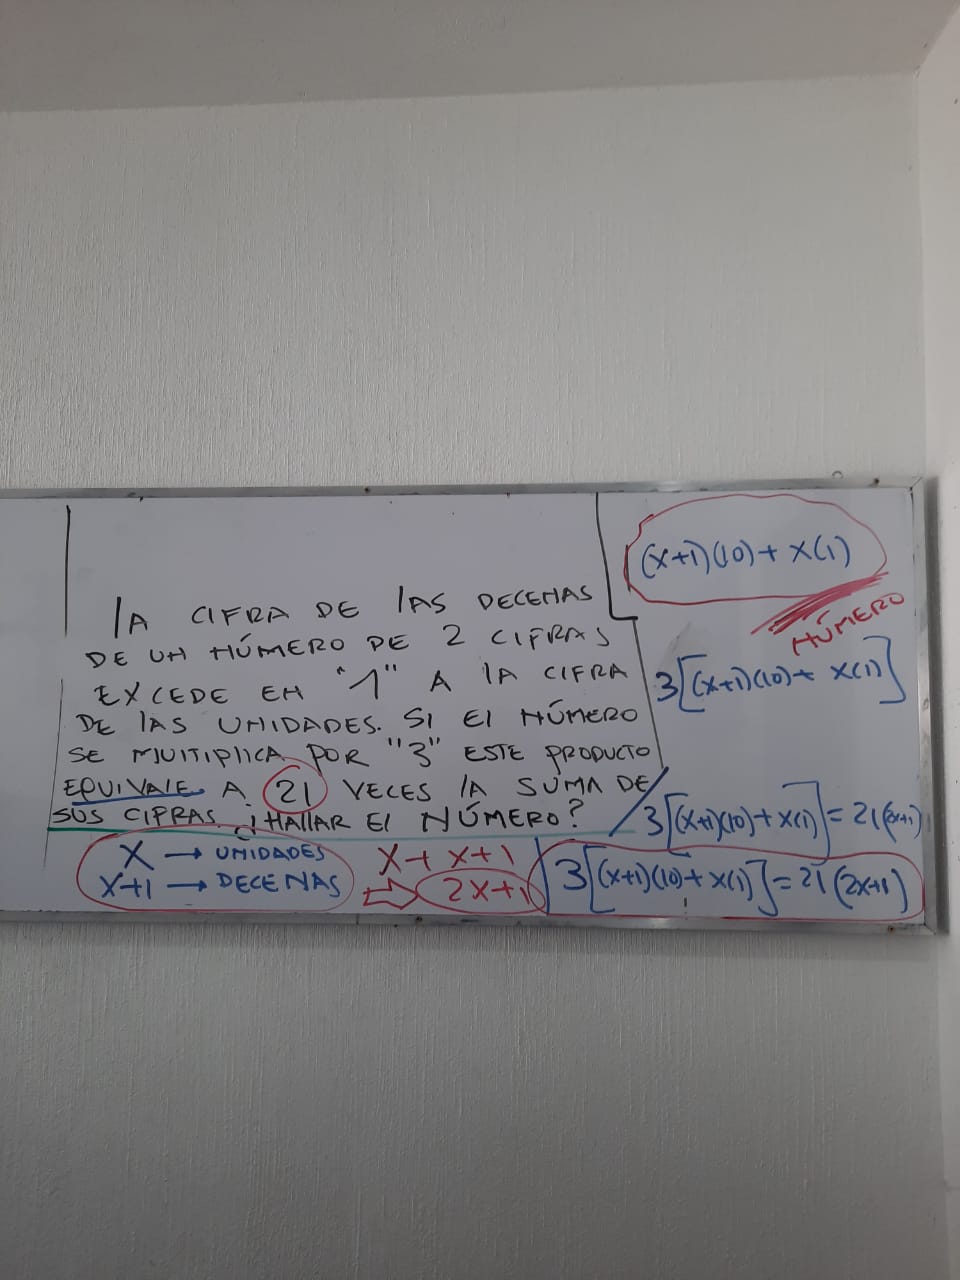 LA CIFRA DE LAS DECENAS
DE UN NÚMERO DE 2 CIFRAS
EXCEDE EN "1" A LA CIFRA
DE LAS UNIDADES. SI El NÚMERO
SE MUlTIPlICA POR "3" ESTE PRODUCTO
EQUIVALE A 21 VECES LA SUMA DE
SUS CIFRAS. ¡HAllAR El NÚMERO?
X → UNIDADES
X+1 → DECENAS
X + X+1
⇒ 2X+1
(X+1)(10) + X(1)
NÚMERO
3[(X+1)(10) + X(1)]
3[(X+1)(10) + X(1)] = 21(2X+1)
3[(X+1)(10) + X(1)] = 21(2X+1)